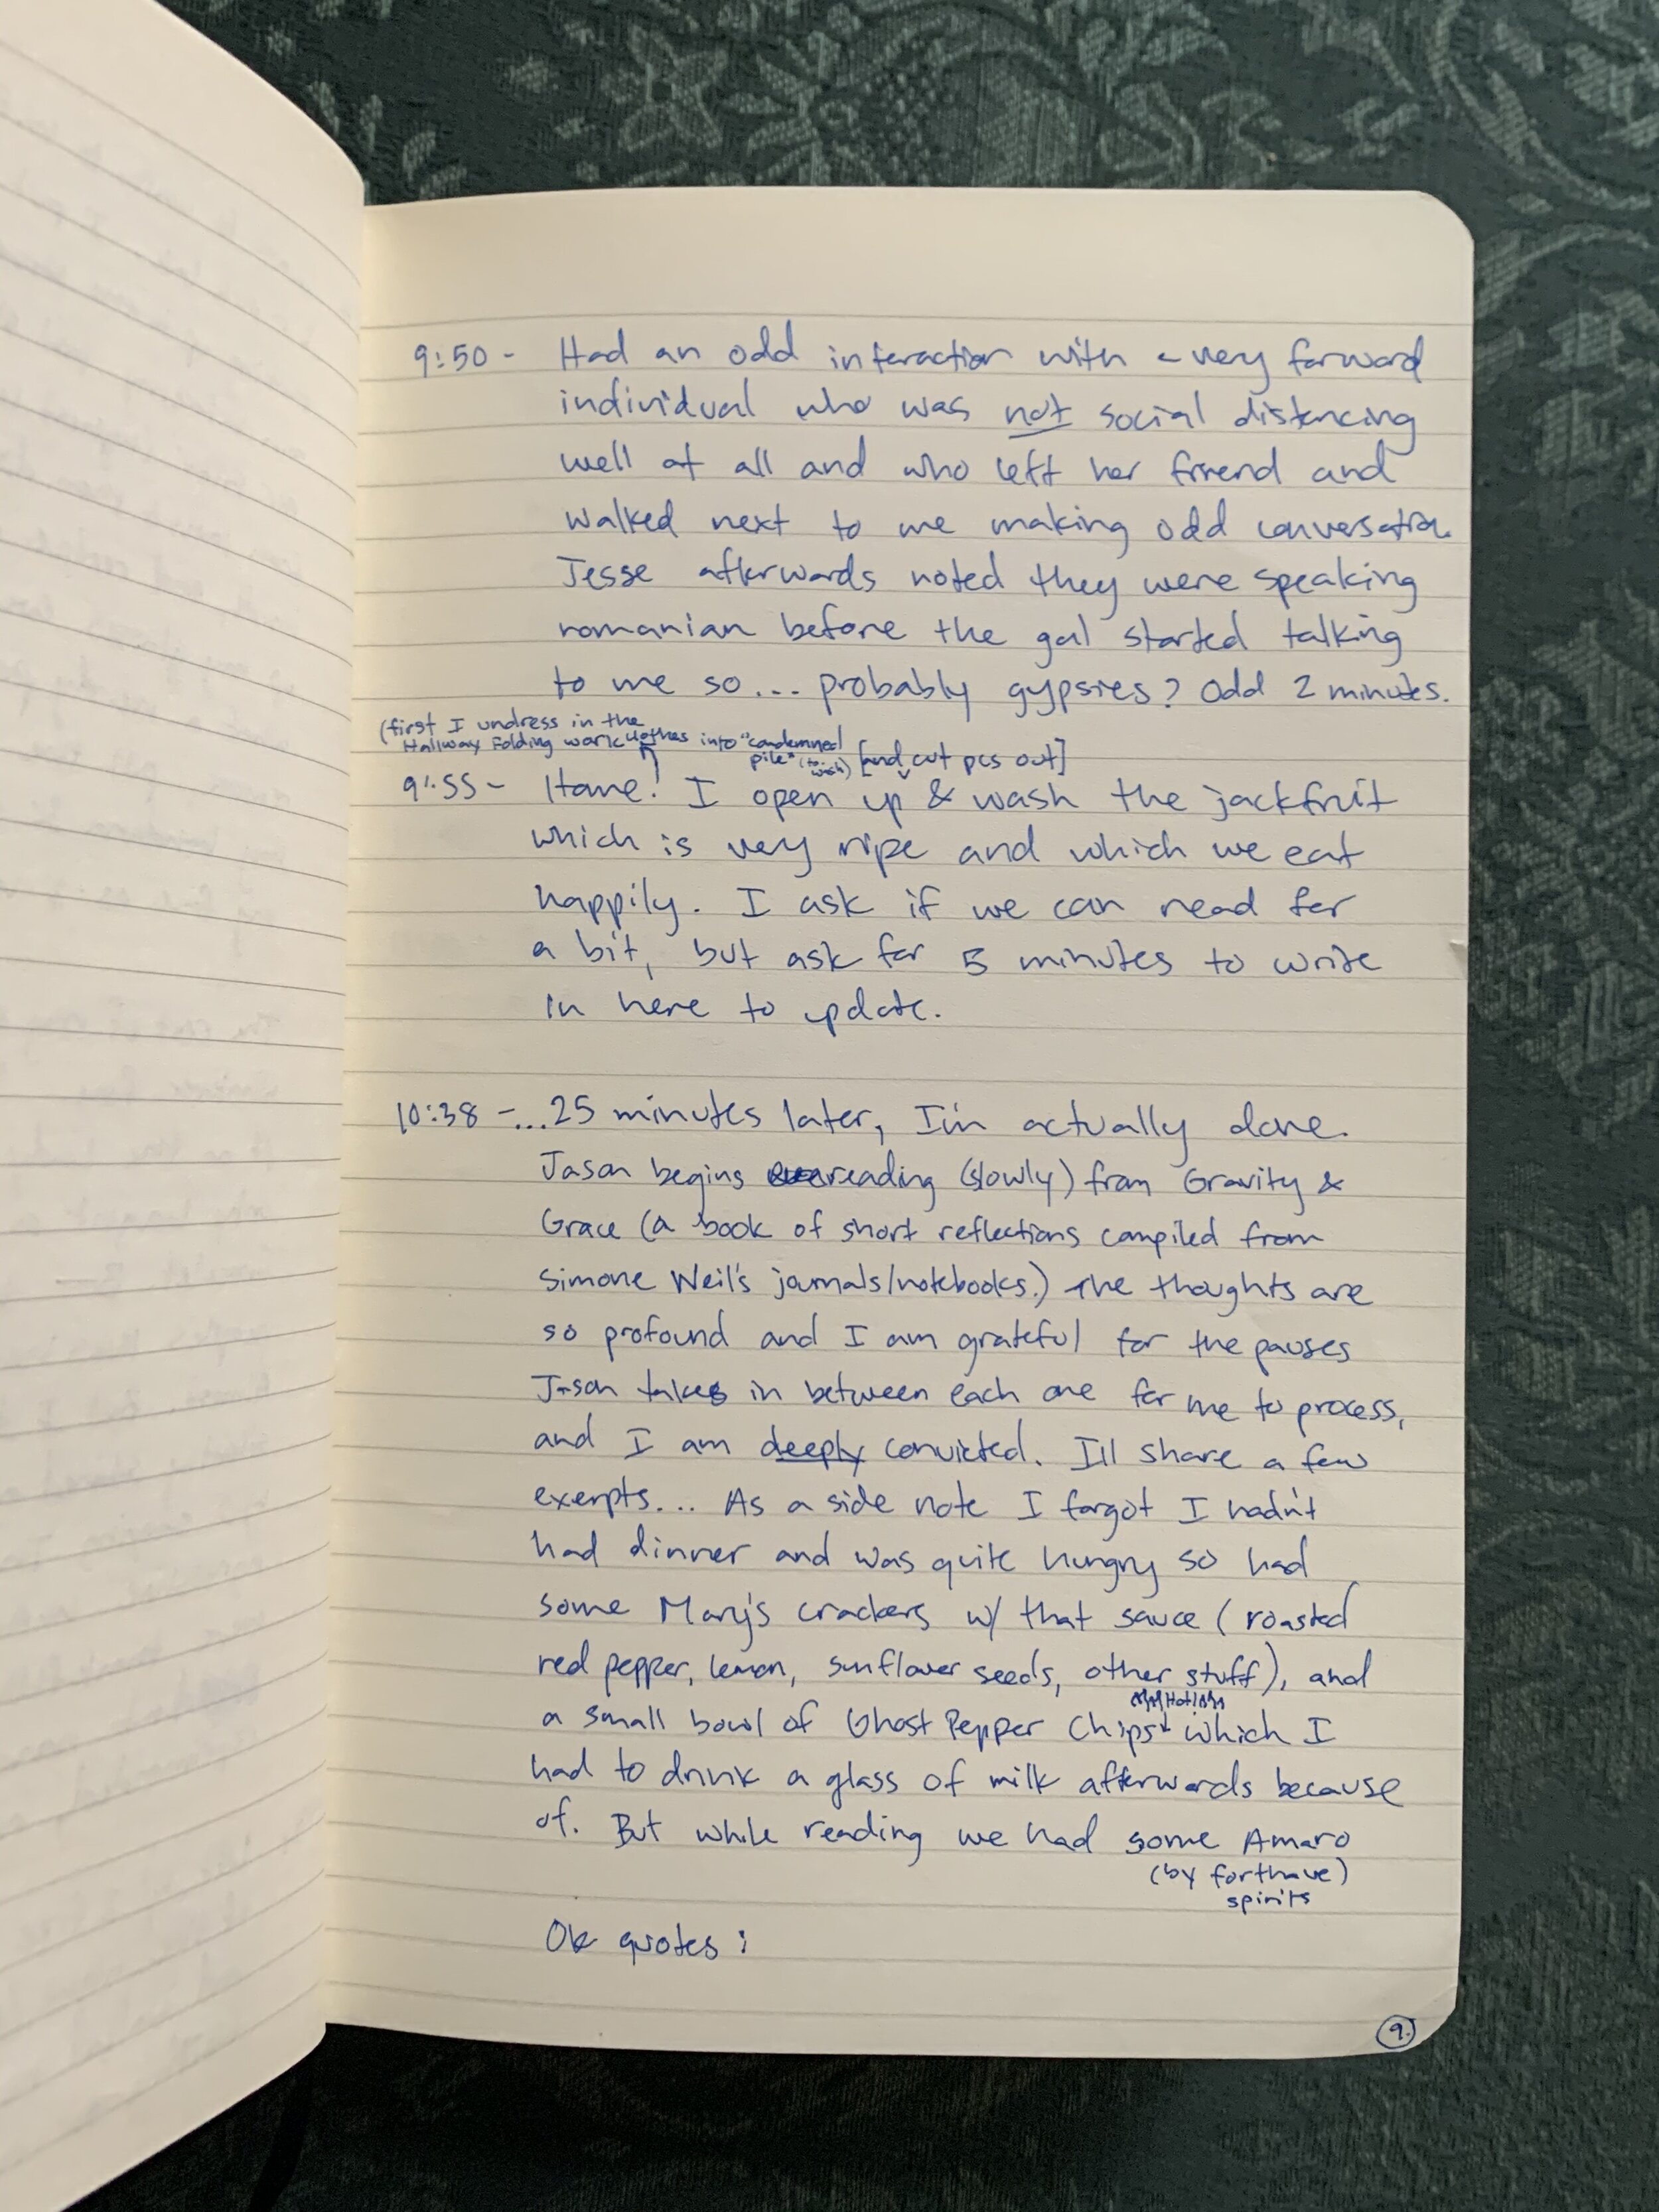 9:50 - Had an odd interaction with a very forward
individual who was not social distancing
well at all and who left her friend and
walked next to me making odd conversation.
Jesse afterwards noted they were speaking
romanian before the gal started talking
to me so... probably gypsies? Odd 2 minutes.
(first I undress in the
Hallway Folding work clothes into "condemned
pile" (to wash) [and cut pcs out]
9:55 - Home! I open up & wash the jackfruit
which is very ripe and which we eat
happily. I ask if we can read for
a bit, but ask for 5 minutes to write
in here to update.
10:38 - ...25 minutes later, I'm actually done.
Jason begins reading (slowly) from Gravity &
Grace (a book of short reflections compiled from
Simone Weil's journals/notebooks.) The thoughts are
so profound and I am grateful for the pauses
Jason takes in between each one for me to process,
and I am deeply convicted. I'll share a few
exerpts... As a side note I forgot I hadn't
had dinner and was quite hungry so had
some Mary's crackers w/ that sauce (roasted
red pepper, lemon, sunflower seeds, other stuff), and
Hot!
a small bowl of Ghost Pepper Chips which I
had to drink a glass of milk afterwards because
of. But while reading we had some Amaro
(by forthave)
spirits
Ok quotes:
9.